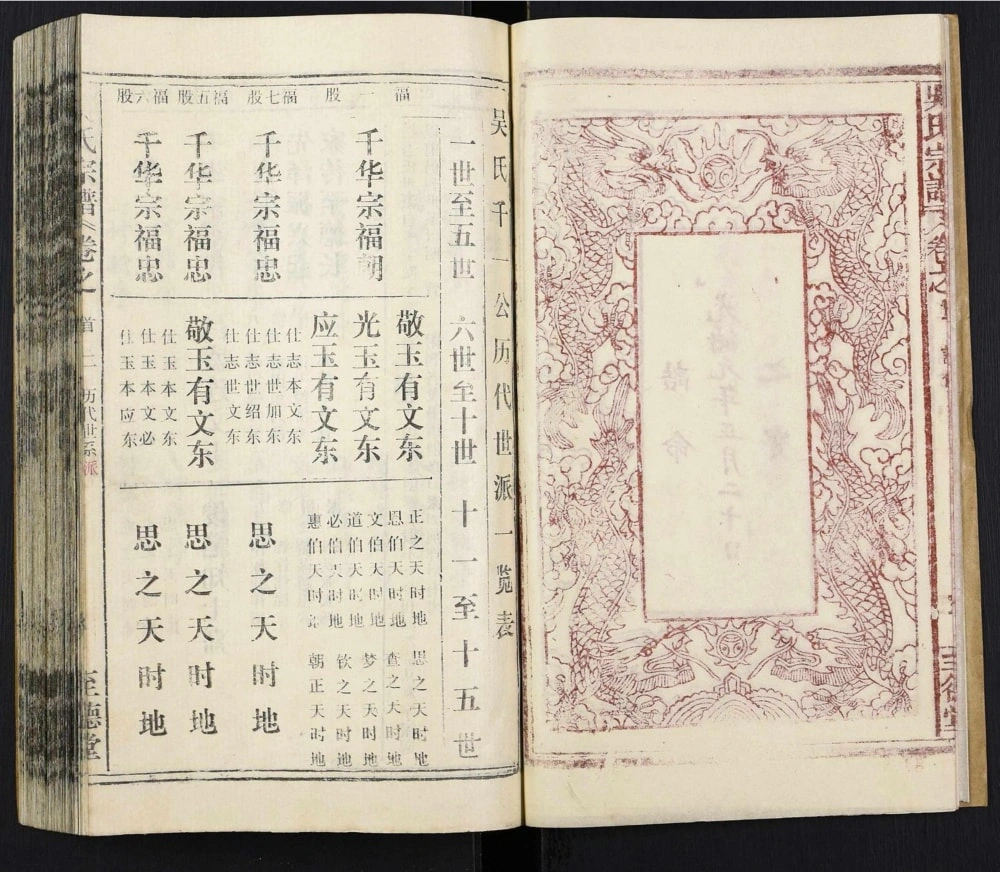 吳氏宗譜
卷之
诰命
光緒元年正月二十日
吴氏千一公历代世派一览表
一世至五世 六世至十世 十一至十五世
福一股
千华宗福朝
敬玉有文东
光玉有文东
应玉有文东
正之天时地
恩伯天时地
文伯天时地
道伯天时地
必伯天时地
惠伯天时
思之天时地
查之天时地
梦之天时地
钦之天时地
朝正天时地
福七股
千华宗福忠
仕志本文东
仕志世加东
仕志世绍东
仕志世文东
思之天时地
福五股
千华宗福忠
敬玉有文东
思之天时地
福六股
千华宗福忠
仕玉本文东
仕玉本文必
仕玉本应东
思之天时地
氏宗谱 卷之 首二 历代世系派 至德堂